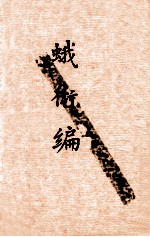 蛾術編